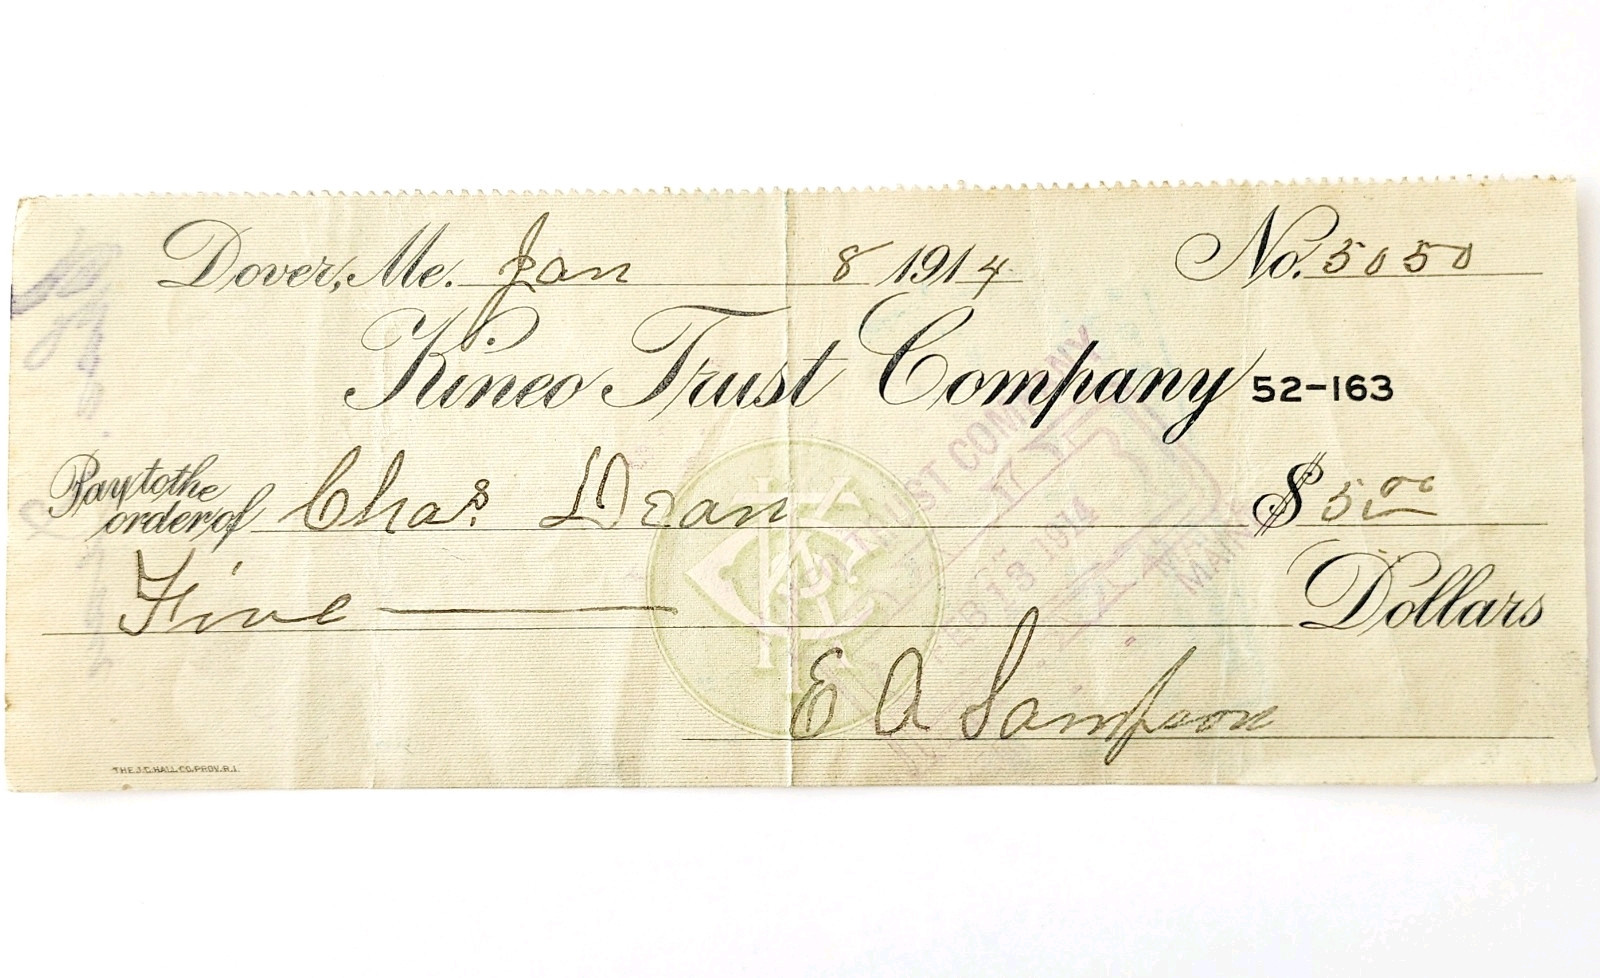 Dover, Me. Jan 8 1914 No. 5050
Kineo Trust Company 52-163
Pay to the order of Chas. Dean $ 5.00
Five Dollars
E A Sampson
THE J.C. HALL CO. PROV. R.I.
TRUST COMPANY
FEB 13 1914
MAINE